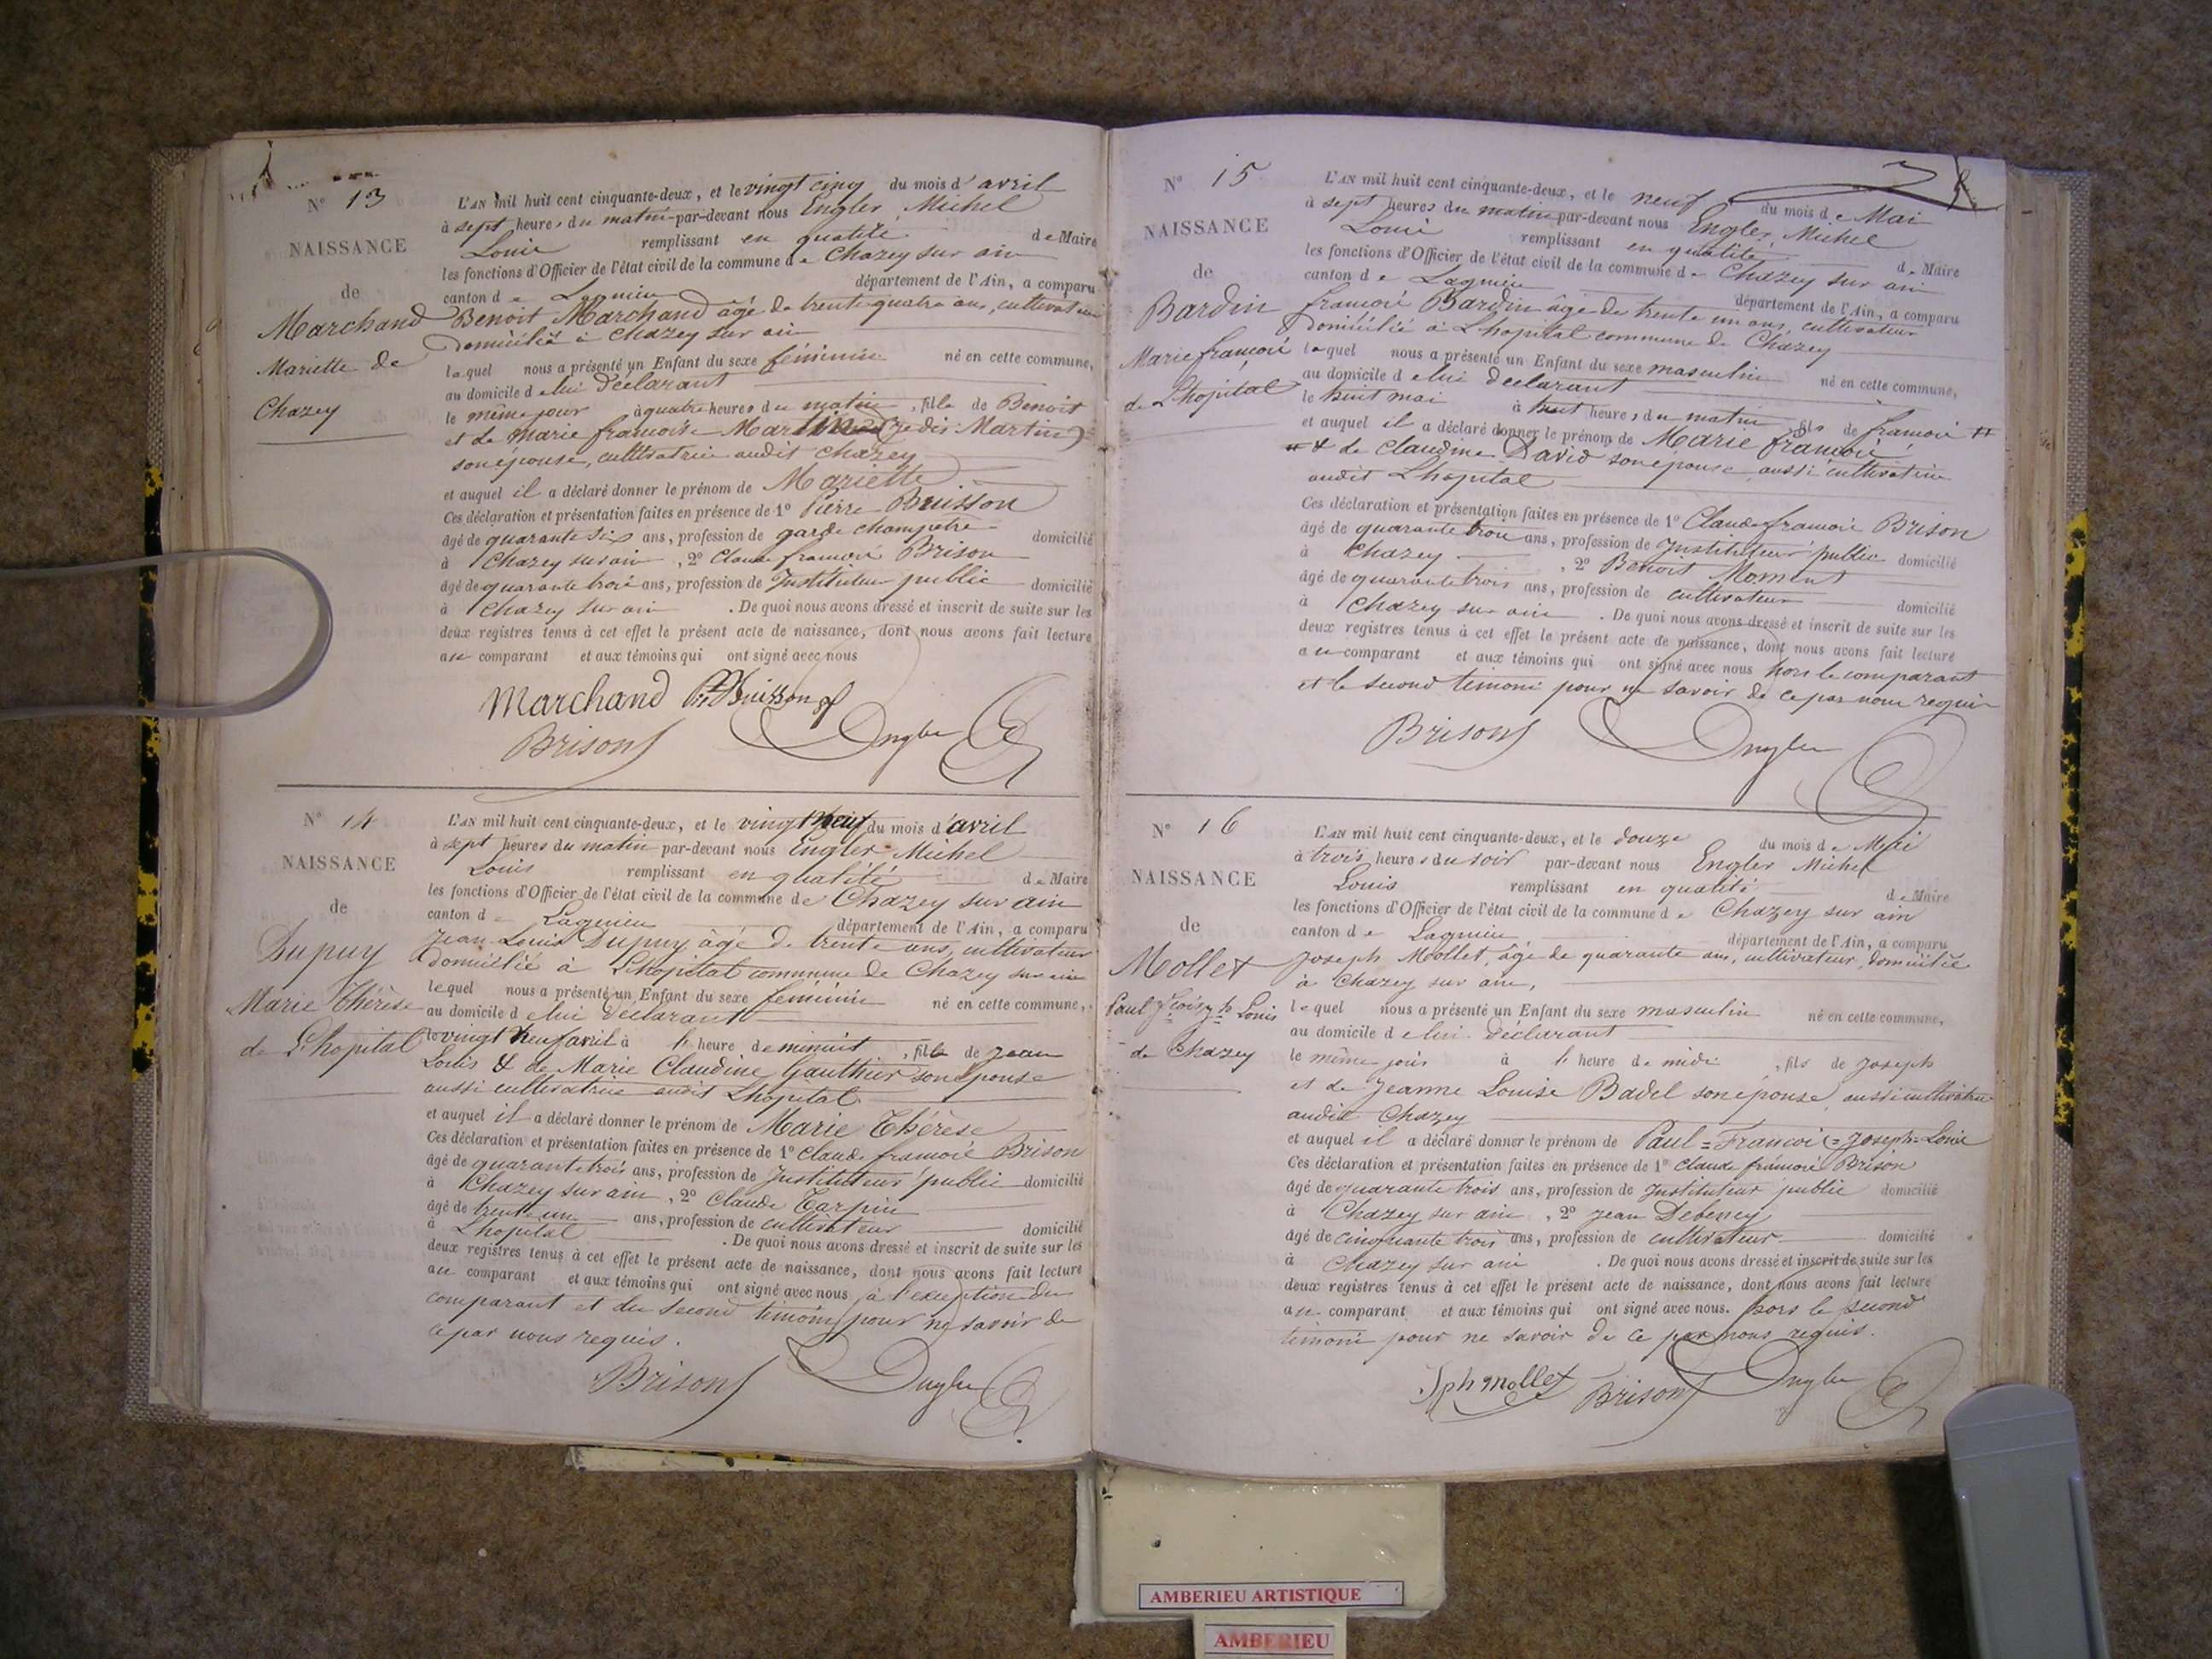 N° 13
NAISSANCE
de
Marchand
Mariette de
Chazey
L'AN mil huit cent cinquante-deux, et le vingt cinq du mois d' avril
à sept heures du matin par-devant nous Engler Michel
Louis remplissant en qualité de Maire
les fonctions d'Officier de l'état civil de la commune de Chazey sur ain
canton de Lagnieu département de l'Ain, a comparu
Benoit Marchand âgé de trente quatre ans, cultivateur
Domicilié à Chazey sur ain
lequel nous a présenté un Enfant du sexe féminin né en cette commune,
au domicile de lui Déclarant
le même jour à quatre heures du matin, fille de Benoit
et de marie francoise (je dis Martin)
son épouse, cultivatrice audit Chazey
et auquel il a déclaré donner le prénom de Mariette
Ces déclaration et présentation faites en présence de 1° Pierre Buisson
âgé de quarante six ans, profession de garde champêtre domicilié
à Chazey sur ain, 2° Claude francois Brison
âgé de quarante trois ans, profession de Instituteur public domicilié
à Chazey sur ain. De quoi nous avons dressé et inscrit de suite sur les
deux registres tenus à cet effet le présent acte de naissance, dont nous avons fait lecture
au comparant et aux témoins qui ont signé avec nous
Marchand Buisson
Brison Engler
N° 14
NAISSANCE
de
Dupuy
Marie Thérèse
de L'hopital
L'AN mil huit cent cinquante-deux, et le vingt neuf du mois d'avril
à sept heures du matin par-devant nous Engler Michel
Louis remplissant en qualité de Maire
les fonctions d'Officier de l'état civil de la commune de Chazey sur ain
canton de Lagnieu département de l'Ain, a comparu
Jean Louis Dupuy, âgé de trente ans, cultivateur
domicilié à L'hopital commune de Chazey sur ain
lequel nous a présenté un Enfant du sexe féminin né en cette commune,
au domicile de lui Déclarant
le vingt neuf avril à l'heure de minuit, fille de Jean
Louis & de Marie Claudine Gauthier son épouse
aussi cultivatrice audit Lhopital
et auquel il a déclaré donner le prénom de Marie Thérèse
Ces déclaration et présentation faites en présence de 1° Claude francois Brison
âgé de quarante trois ans, profession de Instituteur public domicilié
à Chazey sur ain, 2° Claude Carpin
âgé de trente un ans, profession de cultivateur domicilié
à Lhopital. De quoi nous avons dressé et inscrit de suite sur les
deux registres tenus à cet effet le présent acte de naissance, dont nous avons fait lecture
au comparant et aux témoins qui ont signé avec nous à l'exception du
comparant et du second témoin pour ne savoir de
ce par nous requis.
Brison Engler
N° 15
NAISSANCE
de
Bardin
Marie francois
de L'hopital
L'AN mil huit cent cinquante-deux, et le neuf du mois de Mai
à sept heures du matin par-devant nous Engler Michel
Louis remplissant en qualité de Maire
les fonctions d'Officier de l'état civil de la commune de Chazey sur ain
canton de Lagnieu département de l'Ain, a comparu
francois Bardin âgé de trente un ans, cultivateur
Domicilié à L'hopital commune de Chazey
lequel nous a présenté un Enfant du sexe masculin né en cette commune,
au domicile de lui Declarant
le huit mai à huit heures du matin fils de francois #
et auquel il a déclaré donner le prénom de Marie francois
# & de Claudine David son épouse aussi cultivatrice
audit Lhopital
Ces déclaration et présentation faites en présence de 1° Claude francois Brison
âgé de quarante trois ans, profession de Instituteur public domicilié
à Chazey, 2° Benoit Moment
âgé de quarante trois ans, profession de cultivateur domicilié
à Chazey sur ain. De quoi nous avons dressé et inscrit de suite sur les
deux registres tenus à cet effet le présent acte de naissance, dont nous avons fait lecture
au comparant et aux témoins qui ont signé avec nous hors le comparant
et le second témoin pour ne savoir de ce par nous requis
Brison Engler
N° 16
NAISSANCE
de
Mollet
Paul Louis
de Chazey
L'AN mil huit cent cinquante-deux, et le douze du mois de Mai
à trois heures du soir par-devant nous Engler Michel
Louis remplissant en qualité de Maire
les fonctions d'Officier de l'état civil de la commune de Chazey sur ain
canton de Lagnieu département de l'Ain, a comparu
Joseph Mollet, âgé de quarante ans, cultivateur, domicilié
à Chazey sur ain,
lequel nous a présenté un Enfant du sexe masculin né en cette commune,
au domicile de lui Déclarant
le même jour à l'heure de midi, fils de Joseph
et de Jeanne Louise Badel son épouse, aussi cultivatrice
audit Chazey
et auquel il a déclaré donner le prénom de Paul=Francois=Joseph=Louis
Ces déclaration et présentation faites en présence de 1° Claude francois Brison
âgé de quarante trois ans, profession de Instituteur public domicilié
à Chazey sur ain, 2° Jean Debeney
âgé de cinquante trois ans, profession de cultivateur domicilié
à Chazey sur ain. De quoi nous avons dressé et inscrit de suite sur les
deux registres tenus à cet effet le présent acte de naissance, dont nous avons fait lecture
au comparant et aux témoins qui ont signé avec nous. hors le second
témoin pour ne savoir de ce par nous requis.
Jph mollet Brison Engler
AMBERIEU ARTISTIQUE
AMBERIEU